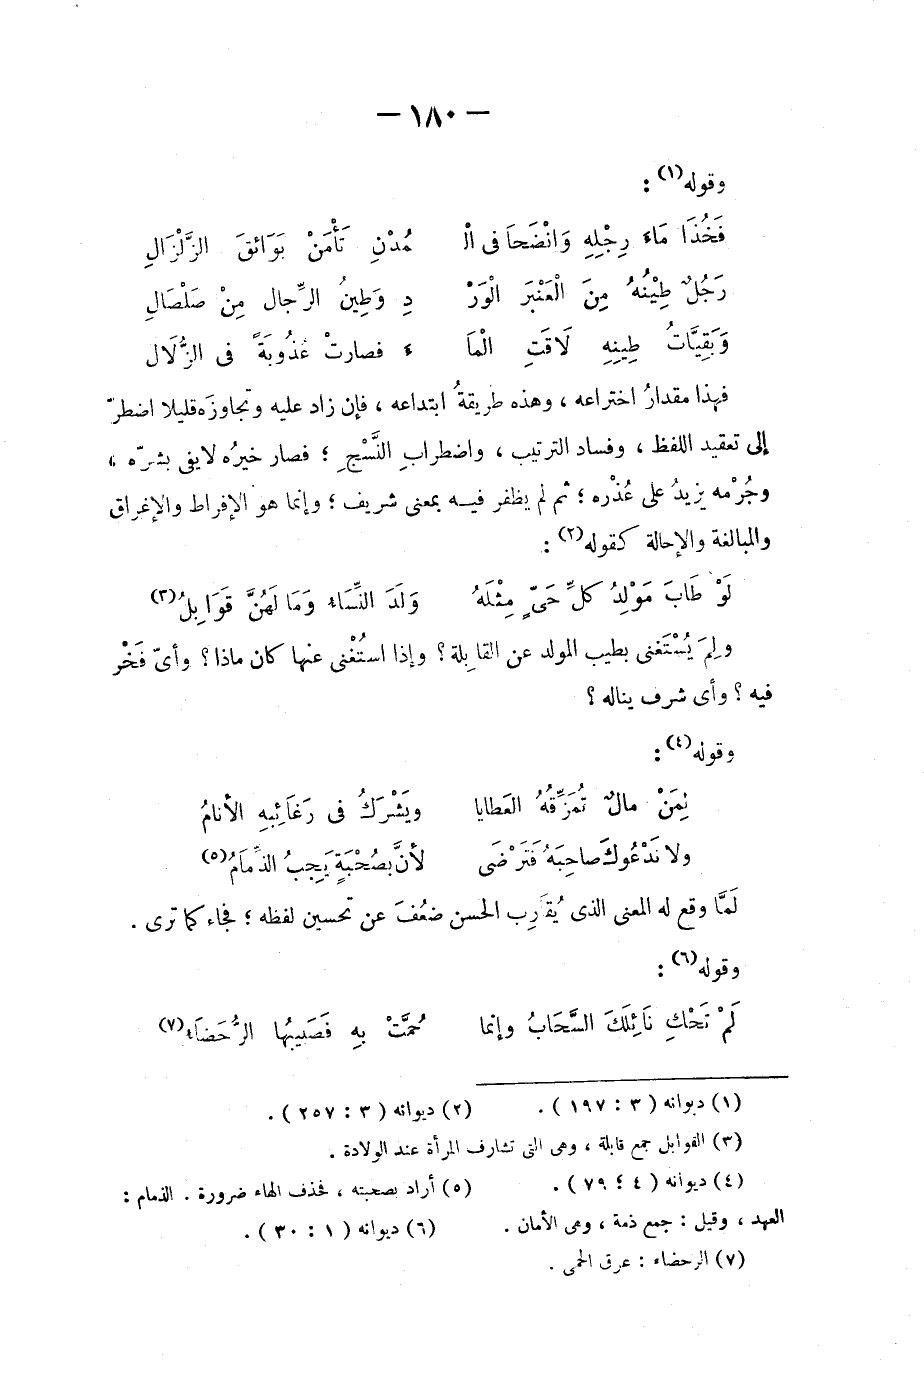 — ١٨٠ —
وقوله(١) :
فَخُذَا مَاءَ رِجْلِهِ وَانْضَحَا فى الْ مُدْنِ تَأْمَنْ بَوَائقَ الزَّلْزَالِ
رَجُلٌ طِيْنُهُ مِنَ الْعَنْبَرِ الْوَرْ دِ وَطِينُ الرِّجال مِنْ صَلْصَالِ
وَبَقِيَّاتُ طِينِهِ لَاقَتِ الْمَا ء فصارتْ عُذُوبَةً فى الزُّلَال
فهذا مقدارُ اختراعه ، وهذه طريقةُ ابتداعه ، فإن زاد عليه وتجاوزَه قليلا اضطرّ
إلى تعقيد اللفظ ، وفساد الترتيب ، واضطرابِ النَّسْجِ ؛ فصار خيرُه لايفى بشرّه ،
وجُرْمه يزيدُ على عُذْره ؛ ثم لم يظفر فيــه بمعنى شريف ؛ وإنما هو الإفراط والإغراق
والمبالغة والإحالة كقوله(٢) :
لَوْ طَابَ مَوْلِدُ كلِّ حَىٍّ مِثْلَهُ وَلَدَ النِّسَاء وَمَا لَهُنَّ قَوَابِلُ(٣)
ولِمَ يُسْتَغنى بطيب المولد عن القابِلة ؟ وإذا استُغْنى عنها كان ماذا ؟ وأىّ فَخْر
فيه ؟ وأى شرف يناله ؟
وقوله(٤) :
نِمَنْ مالٌ تُمَزِّقُهُ العَطايا ويَشْرَكُ فى رَغَائِبِهِ الأنامُ
ولا نَدْعُوكَ صاحِبَهُ فَتَرْضَى لأنَّ بصُحْبَةٍ يَجِبُ الذِّمَامُ(٥)
لَمَّا وقع له المعنى الذى يُقَارِب الحسن ضعُفَ عن تحسين لفظه ؛ فجاء كما ترى .
وقوله(٦) :
لَمْ تَحْكِ نَائِلَكَ السَّحَابُ وإنما حُمَّتْ بِهِ فَصَبِيبُها الرُّحَضاءِ(٧)
(١) ديوانه ( ٣ : ١٩٧ ) . (٢) ديوانه ( ٣ : ٢٥٧ ) .
(٣) القوابل جمع قابلة ، وهى التى تشارف المرأة عند الولادة .
(٤) ديوانه ( ٤ : ٧٩ ) . (٥) أراد بصحبته ، فحذف الهاء ضرورة . الذمام :
العهد ، وقيل : جمع ذمة ، وهى الأمان . (٦) ديوانه ( ١ : ٣٠ ) .
(٧) الرحضاء : عرق الحمى .